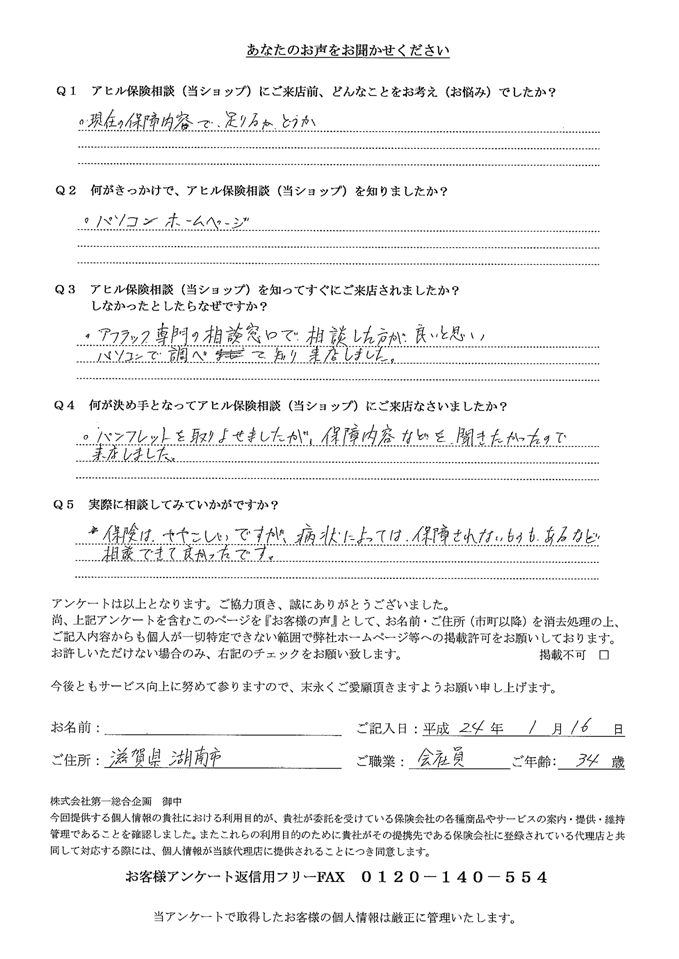 あなたのお声をお聞かせください
Q1 アヒル保険相談（当ショップ）にご来店前、どんなことをお考え（お悩み）でしたか？
。現在の保障内容で、足りるか、どうか
Q2 何がきっかけで、アヒル保険相談（当ショップ）を知りましたか？
。パソコン ホームページ
Q3 アヒル保険相談（当ショップ）を知ってすぐにご来店されましたか？
しなかったとしたらなぜですか？
。アフラック専門の相談窓口で相談した方が良いと思い
パソコンで調べ て知り来店しました。
Q4 何が決め手となってアヒル保険相談（当ショップ）にご来店なさいましたか？
。パンフレットを取りよせましたが、保障内容などを聞きたかったので
来店しました。
Q5 実際に相談してみていかがですか？
* 保険は、ややこしいですが、病状によっては、保障されないものも、あるなど
相談できて良かったです。
アンケートは以上となります。ご協力頂き、誠にありがとうございました。
尚、上記アンケートを含むこのページを『お客様の声』として、お名前・ご住所（市町以降）を消去処理の上、
ご記入内容からも個人が一切特定できない範囲で弊社ホームページ等への掲載許可をお願いしております。
お許しいただけない場合のみ、右記のチェックをお願い致します。 掲載不可 □
今後ともサービス向上に努めて参りますので、末永くご愛顧頂きますようお願い申し上げます。
お名前： ご記入日：平成 24 年 1 月 16 日
ご住所： 滋賀県 湖南市 ご職業： 会社員 ご年齢： 34 歳
株式会社第一総合企画 御中
今回提供する個人情報の貴社における利用目的が、貴社が委託を受けている保険会社の各種商品やサービスの案内・提供・維持
管理であることを確認しました。またこれらの利用目的のために貴社がその提携先である保険会社に登録されている代理店と共
同して対応する際には、個人情報が当該代理店に提供されることにつき同意します。
お客様アンケート返信用フリーFAX 0120－140－554
当アンケートで取得したお客様の個人情報は厳正に管理いたします。